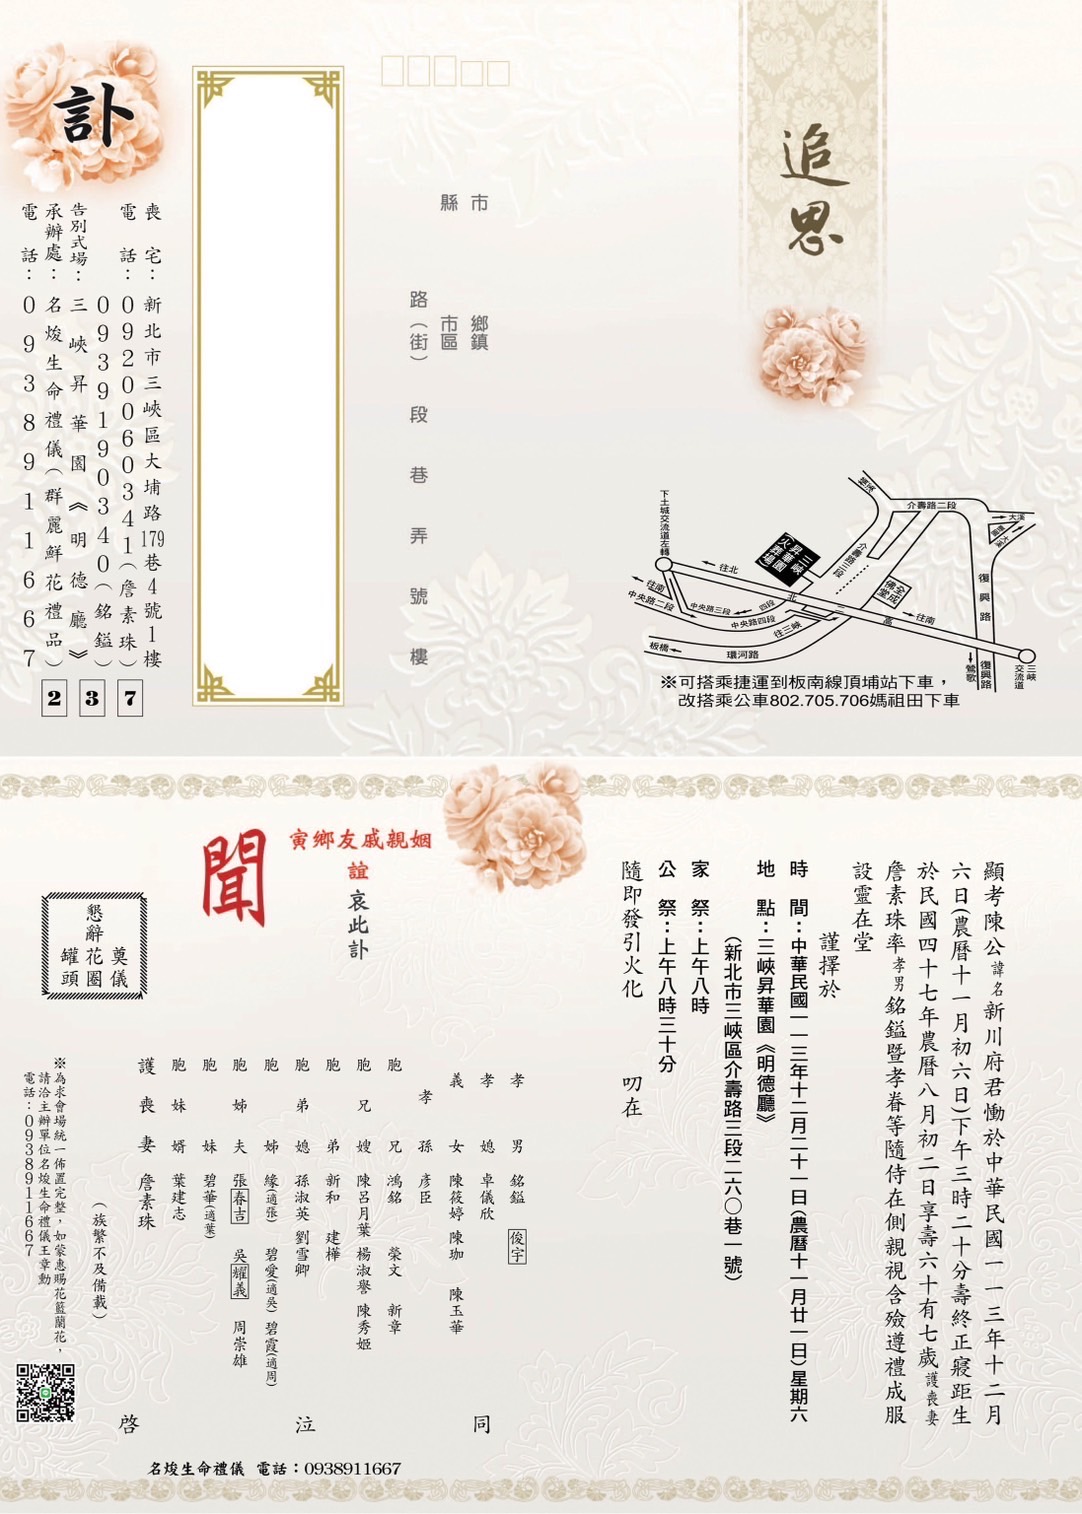 追思
下土城交流道左轉
鶯溪
介壽路二段
大溪
復興路
介壽路三段
三峽
昇華園
火葬場
全成
佛堂
往北
往南
往南
中央路二段
中央路三段
四段
中央路四段
往三峽
北
二
高
板橋
環河路
鶯歌
復興路
三峽
交流道
※可搭乘捷運到板南線頂埔站下車，
改搭乘公車802.705.706媽祖田下車
市
縣
鄉鎮
市區
路（街）　段　巷　弄　號　樓
訃
喪　宅：新北市三峽區大埔路179巷4號1樓
電　話：0920060341（詹素珠）
0939190340（銘鎰）
告別式場：三峽昇華園《明德廳》
承辦處：名焌生命禮儀（群麗鮮花禮品）
電　話：0938911667
237
顯考陳公諱名新川府君慟於中華民國一一三年十二月
六日（農曆十一月初六日）下午三時二十分壽終正寢距生
於民國四十七年農曆八月初二日享壽六十有七歲護喪妻
詹素珠率孝男銘鎰暨孝眷等隨侍在側親視含殮遵禮成服
設靈在堂
謹擇於
時　間：中華民國一一三年十二月二十一日（農曆十一月廿一日）星期六
地　點：三峽昇華園《明德廳》
（新北市三峽區介壽路三段二六〇巷一號）
家　祭：上午八時
公　祭：上午八時三十分
隨即發引火化　叨在
寅鄉友戚親姻
誼哀此訃
聞
孝男　銘鎰　俊宇
孝媳　卓儀欣
義女　陳筱婷　陳珈　陳玉華
孝孫　彥臣
胞兄　鴻銘　榮文　新章
胞兄嫂　陳呂月葉　楊淑譽　陳秀姬
胞弟　新和　建樺
胞弟媳　孫淑英　劉雪卿
胞姊　緣（適張）　碧愛（適吳）　碧霞（適周）
胞姊夫　張春吉　吳耀義　周崇雄
胞妹　碧華（適葉）
胞妹婿　葉建志
護喪妻　詹素珠
同　泣　啓
（族繁不及備載）
奠儀
懇辭花圈
罐頭
※為求會場統一佈置完整，如蒙惠賜花籃蘭花，
請洽主辦單位名焌生命禮儀王章勳
電話：0938911667
名焌生命禮儀　電話：0938911667